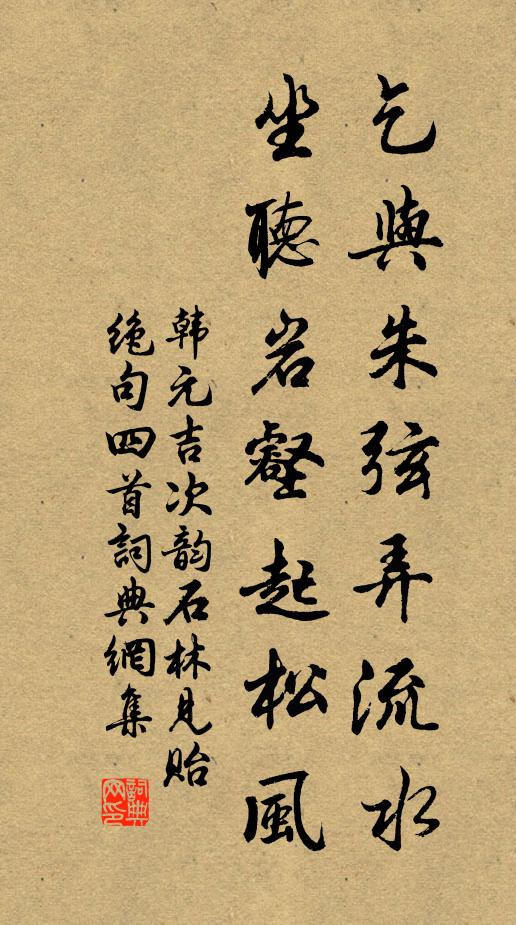 乞與朱弦弄流水
坐聽岩壑起松風
韩元吉次韵石林見贻
絶句四首詞典網集
詞典網印